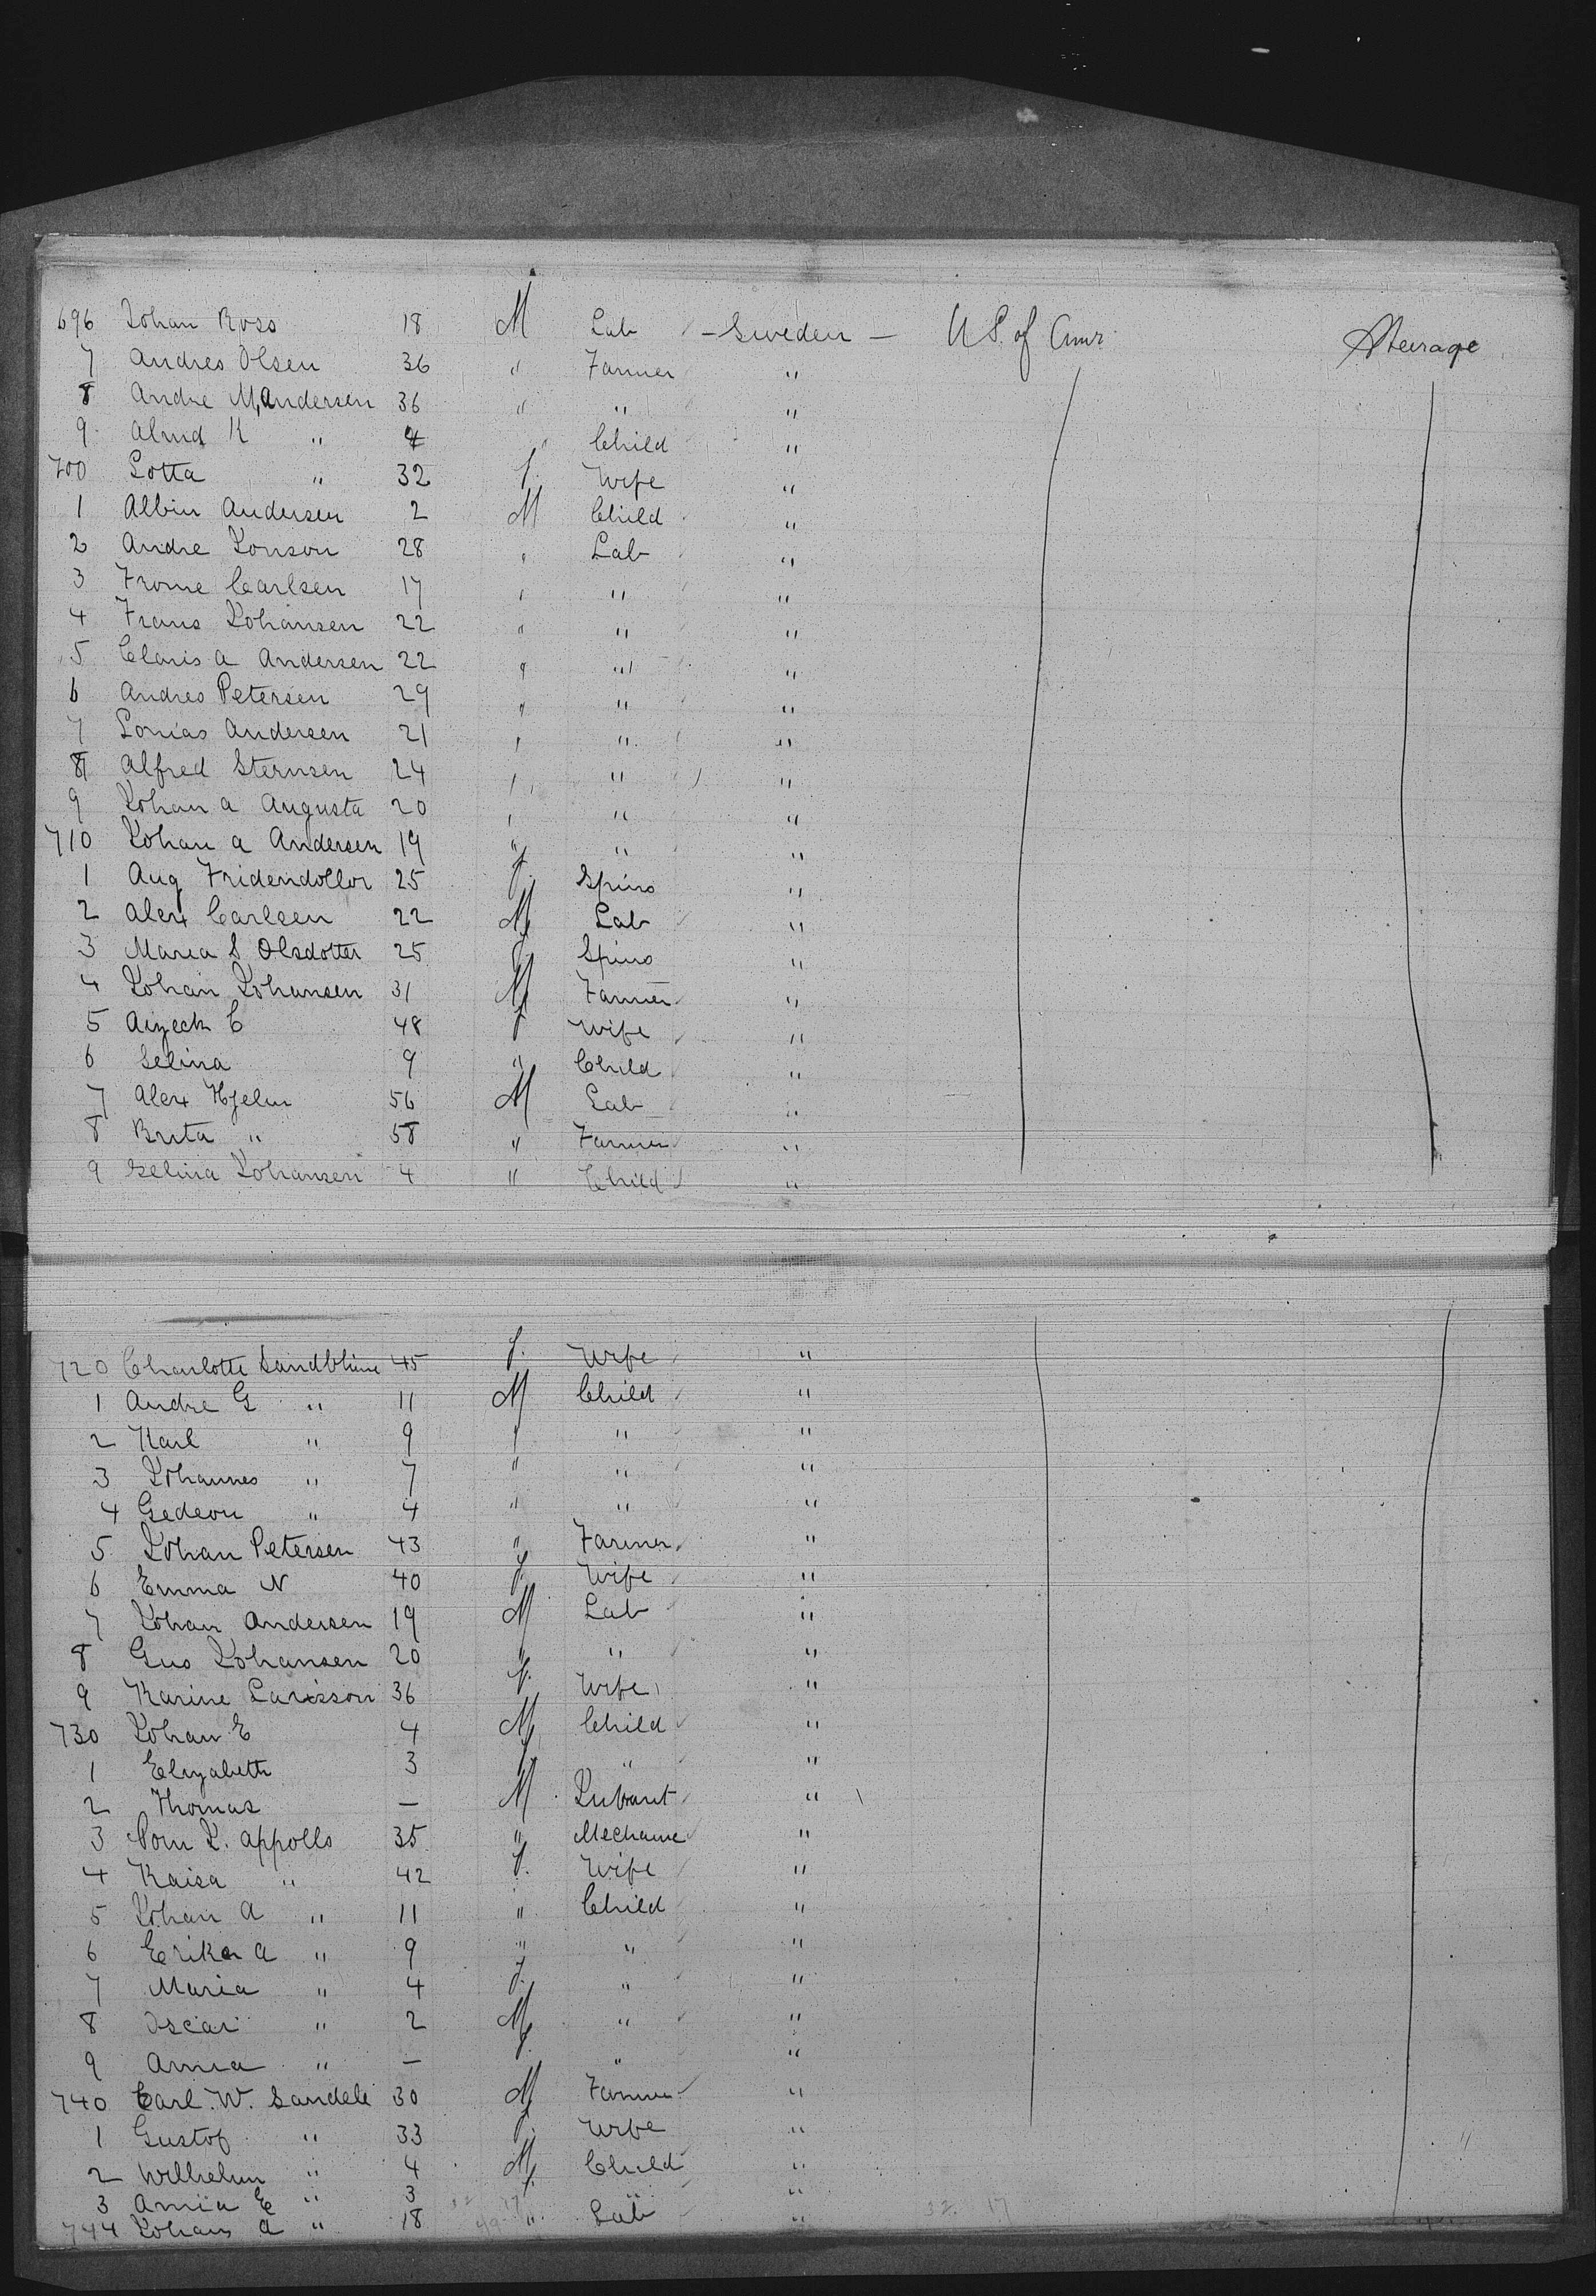 696 Johan Ross 18 M Lab - Sweden - U S. of Amr. Steerage
7 Andres Olsen 36 " Farmer "
8 Andre M, Andersen 36 " " "
9 Almd K " 4 " Child "
700 Lotta " 32 f. Wife "
1 Albin Andersen 2 M Child "
2 Andre Jonson 28 " Lab "
3 Frome Carlsen 17 " " "
4 Frans Johansen 22 " " "
5 Claris A Andersen 22 " " "
6 Andres Petersen 29 " " "
7 Jonias Andersen 21 " " "
8 Alfred Sternsen 24 " " "
9 Johan A Augusta 20 " " "
710 Johan A Andersen 19 " " "
1 Aug Fridendollor 25 f. Spins "
2 Alex Carlsen 22 M Lab "
3 Maria S Olsdotter 25 f. Spins "
4 Johan Johansen 31 M Farmer "
5 C 48 f Wife "
6 Selina 9 " Child "
7 Alex Hjelm 56 M Lab "
8 Brita " 58 " Farmer "
9 Selina Johansen 4 " Child "
720 Charlotte Sandblime 45 f. Wife "
1 Andre G " 11 M Child "
2 Karl " 9 " " "
3 Johannes " 7 " " "
4 Gedeon " 4 " " "
5 Johan Petersen 43 " Farmer "
6 Emma N 40 f. Wife "
7 Johan Andersen 19 M Lab "
8 Gus Johansen 20 " " "
9 Karine Larsson 36 f. Wife "
730 Johan E 4 M Child "
1 Elizabeth 3 f " "
2 Thomas — M Infant "
3 J. Appolls 35 " Mechanic "
4 Kaisa " 42 f. Wife "
5 Johan A " 11 " Child "
6 Erika A " 9 " " "
7 Maria " 4 f. " "
8 Oscar " 2 M " "
9 Anna " — f. " "
740 Carl. W. Sandele 30 M Farmer "
1 Gustof " 33 f. Wife "
2 Wilhelm " 4 M Child "
3 Annia E " 3 f. " "
744 Johan A " 18 " Lab "
32. 17